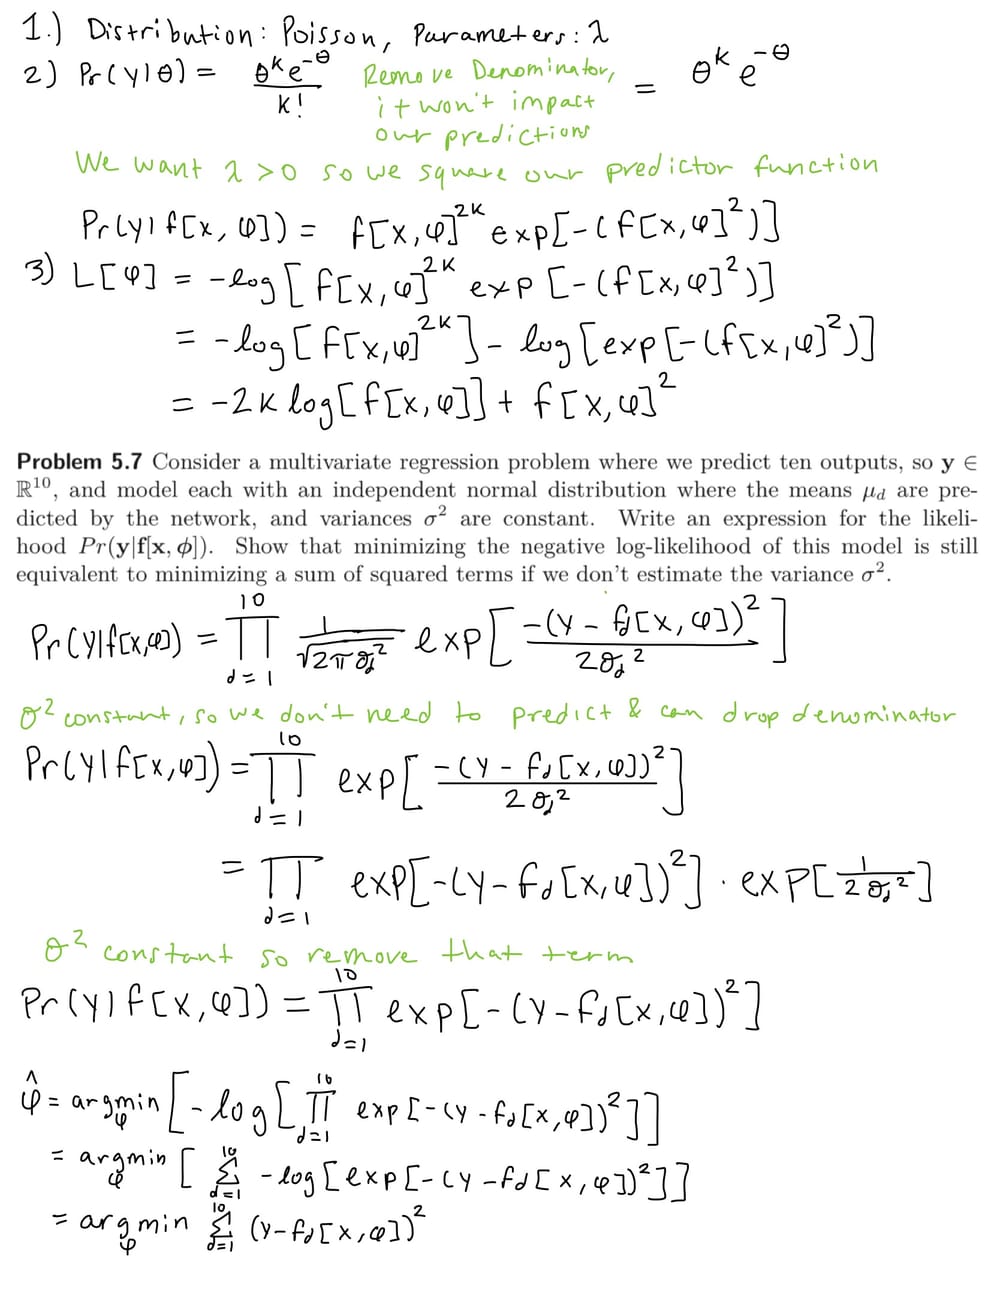 1.) Distribution: Poisson, Parameters: λ
2) Pr(y|θ) = θ^k e^-θ / k! Remove Denominator, it won't impact our predictions = θ^k e^-θ
We want λ > 0 so we square our predictor function
Pr(y|f[x, φ]) = f[x,φ]^2K exp[-(f[x,φ]^2)]
3) L[φ] = -log[f[x,φ]^2K exp[-(f[x,φ]^2)]
= -log[f[x,φ]^2K] - log[exp[-(f[x,φ]^2)]
= -2K log[f[x,φ]] + f[x,φ]^2
Problem 5.7 Consider a multivariate regression problem where we predict ten outputs, so y ∈
ℝ^10, and model each with an independent normal distribution where the means μ_d are pre-
dicted by the network, and variances σ^2 are constant. Write an expression for the likeli-
hood Pr(y|f[x, ϕ]). Show that minimizing the negative log-likelihood of this model is still
equivalent to minimizing a sum of squared terms if we don't estimate the variance σ^2.
Pr(y|f[x,φ]) = ∏_{d=1}^{10} 1/√(2πσ_d^2) exp[-(y - f_d[x,φ])^2 / 2σ_d^2]
σ^2 constant, so we don't need to predict & can drop denominator
Pr(y|f[x,φ]) = ∏_{d=1}^{10} exp[-(y - f_d[x,φ])^2 / 2σ_d^2]
= ∏_{d=1} exp[-(y - f_d[x,φ])^2] · exp[1/2σ_d^2]
σ^2 constant so remove that term
Pr(y|f[x,φ]) = ∏_{d=1}^{10} exp[-(y-f_d[x,φ])^2]
φ̂ = argmin_φ [-log[∏_{d=1}^{10} exp[-(y-f_d[x,φ])^2]]
= argmin_φ [∑_{d=1}^{10} -log[exp[-(y-f_d[x,φ])^2]]
= argmin_φ ∑_{d=1}^{10} (y-f_d[x,φ])^2